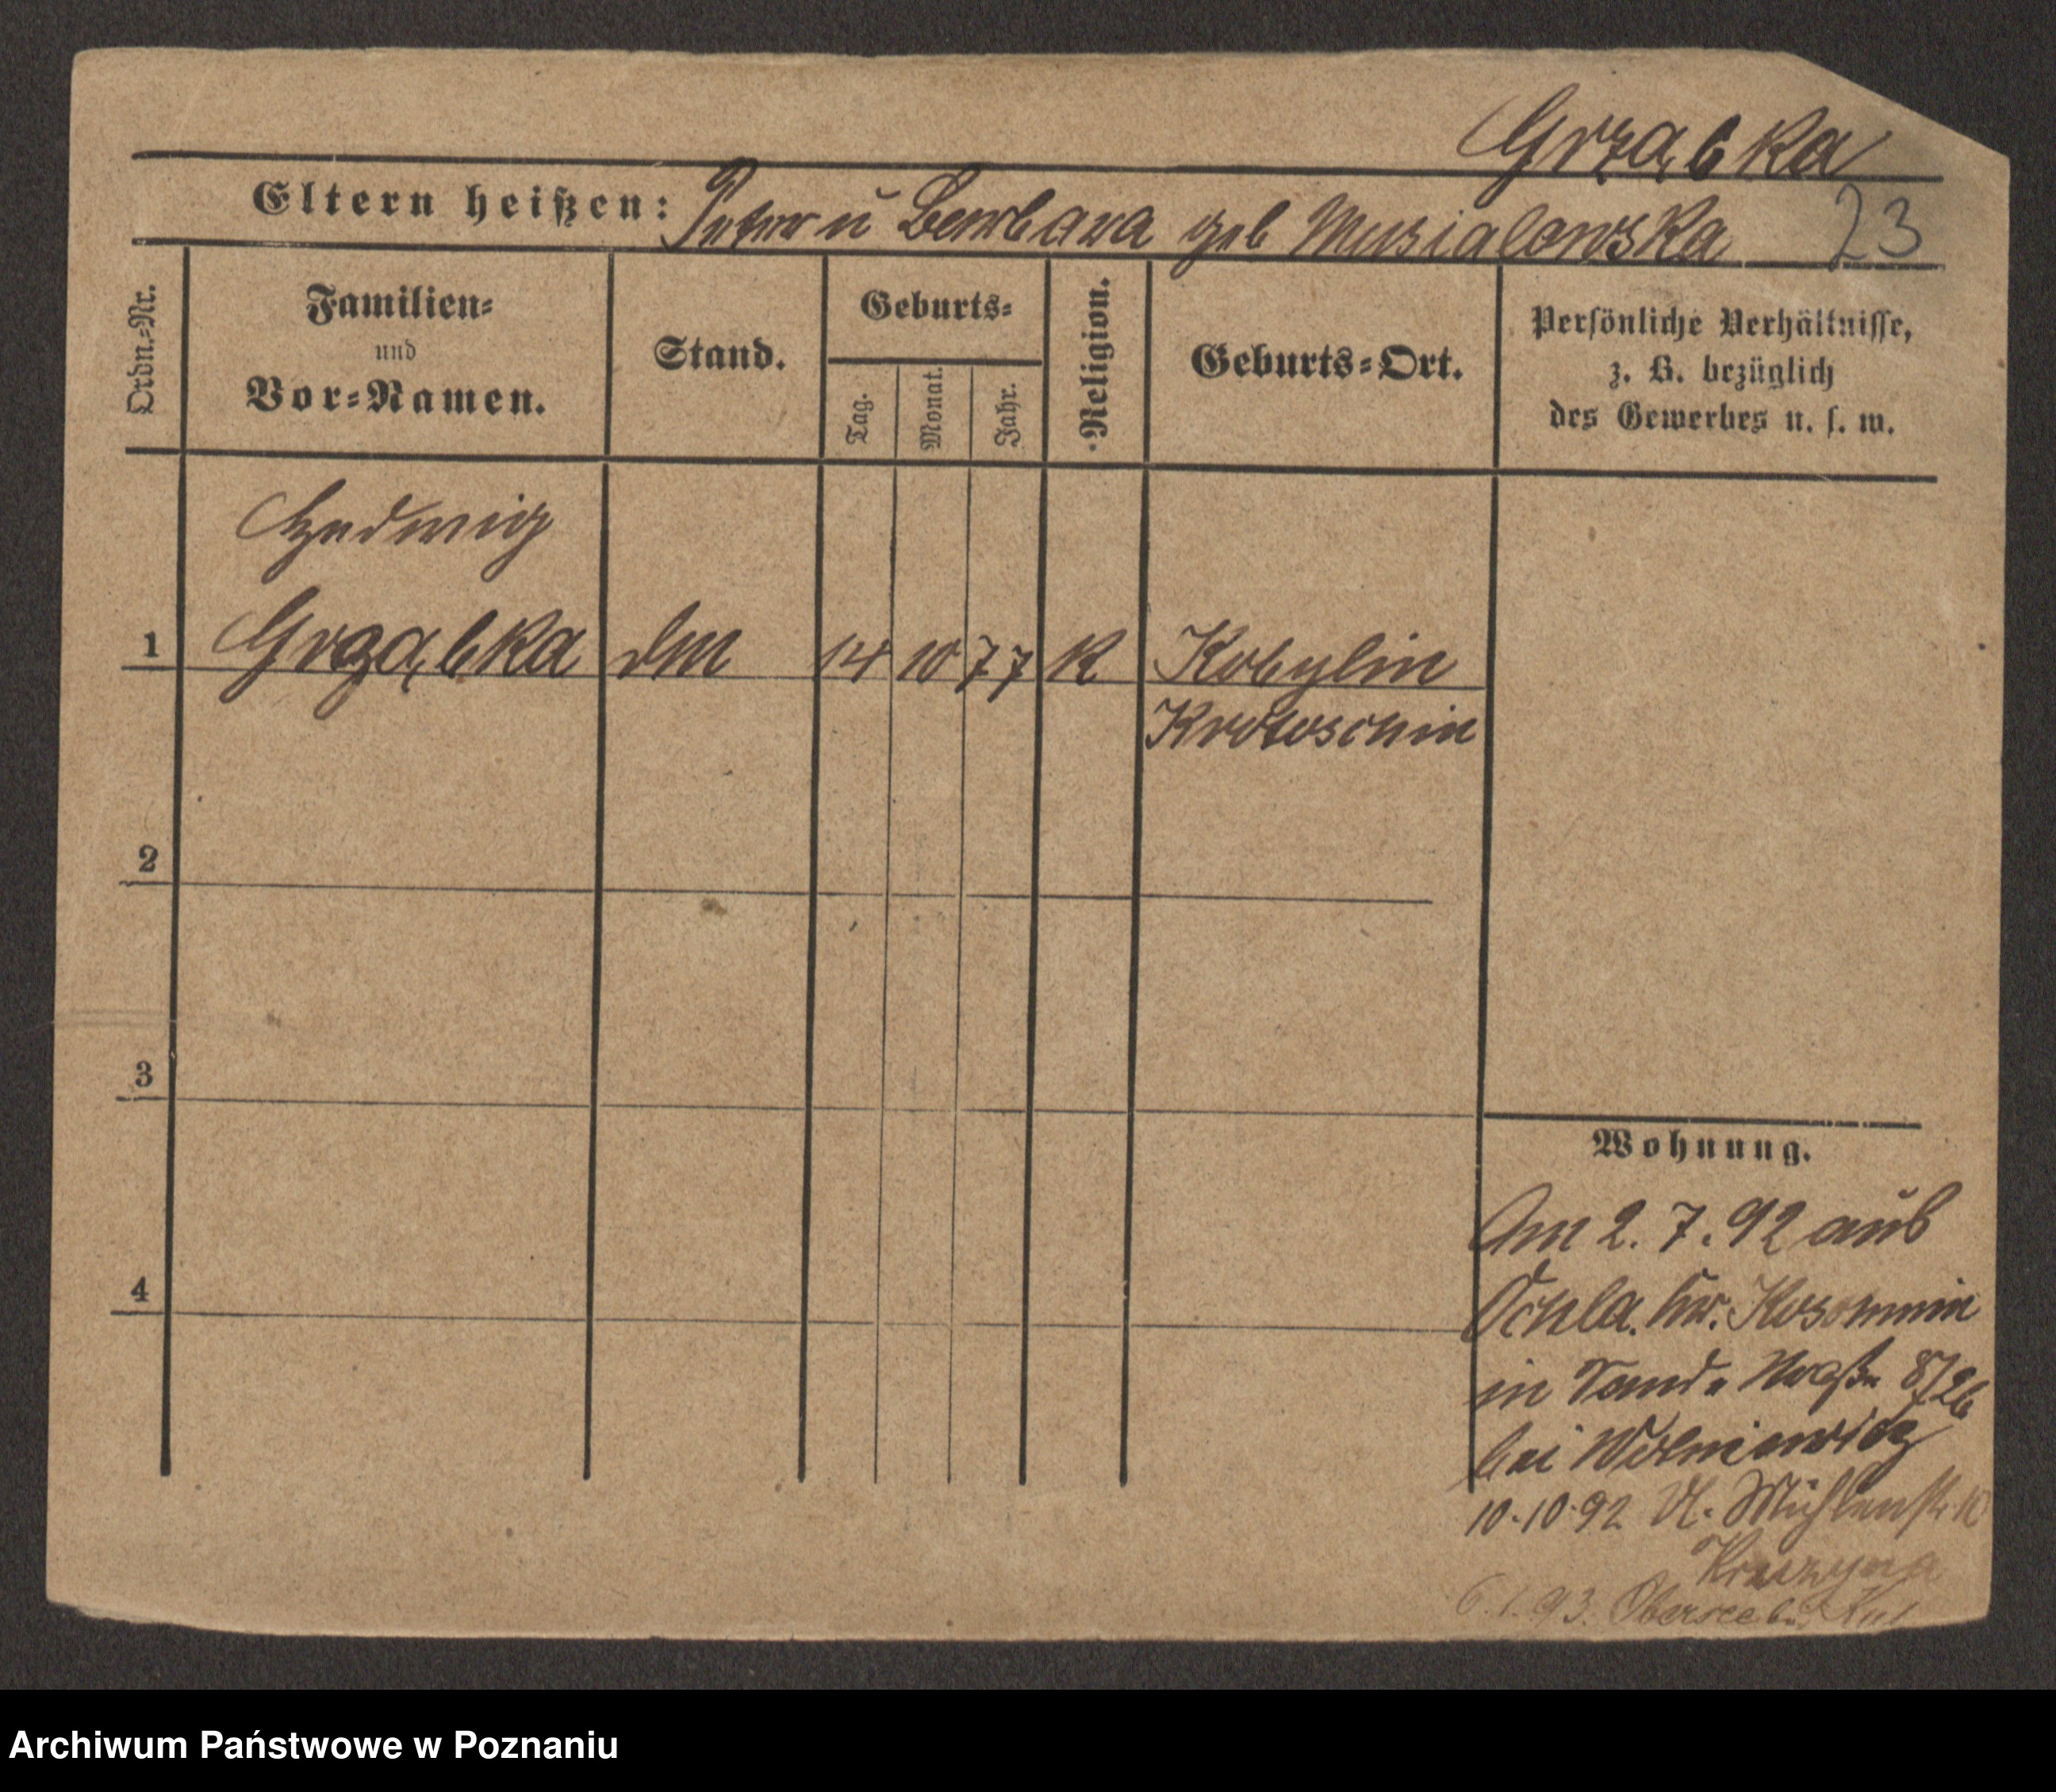 Grząbka
Eltern heißen: Peter u Barbara geb Musialowska 23
Ordn.-Nr.
Familien-
und
Vor-Namen.
Stand.
Geburts-
Tag.
Monat.
Jahr.
Religion.
Geburts-Ort.
Persönliche Verhältnisse,
z. B. bezüglich
des Gewerbes u. s. w.
Hedwig
1 Grząbka dm 14 10 77 K Kobylin
Krotoschin
2
3
4
Wohnung.
Am 2. 7. 92 aus
Ochla. Kr. Kosommin
in Straße 8/26
bei
10.10.92 Kl. Mühlenstr. 10
6.1.93. Obersee
Archiwum Państwowe w Poznaniu